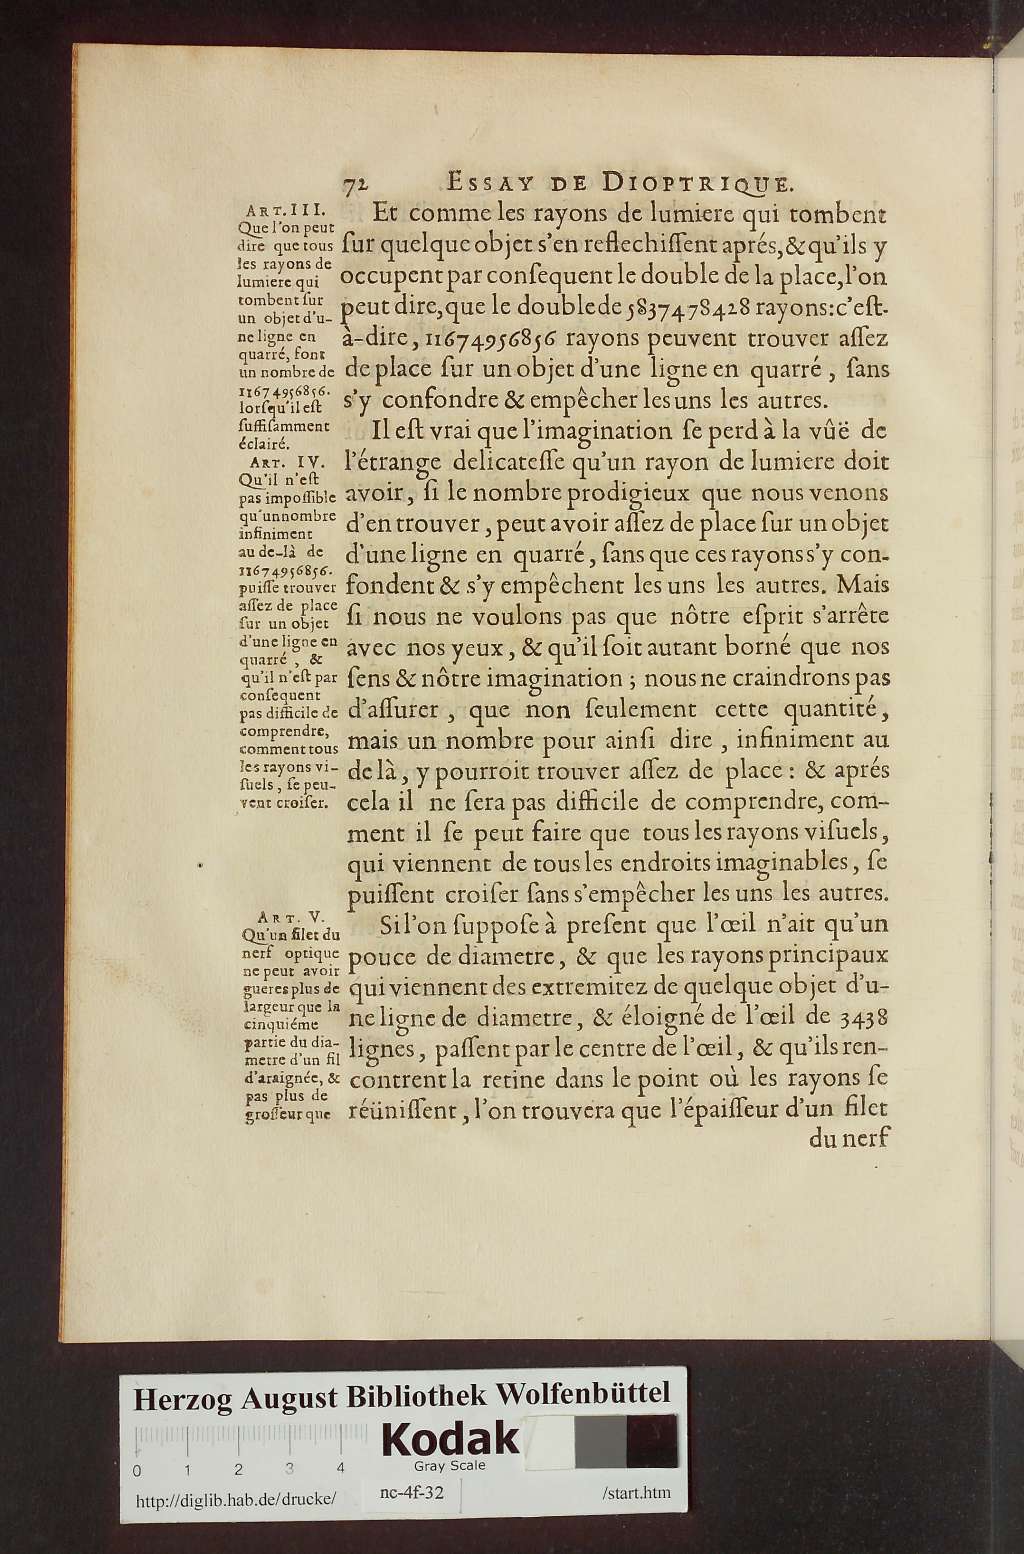 72 ESSAY DE DIOPTRIQUE.
ART. III.
Que l'on peut
dire que tous
les rayons de
lumiere qui
tombent ſur
un objet d'u-
ne ligne en
quarré, font
un nombre de
11674956856.
lorſqu'il eſt
ſuffiſamment
éclairé.
ART. IV.
Qu'il n'eſt
pas impoſſible
qu'un nombre
infiniment
au de-là de
11674956856.
puiſſe trouver
aſſez de place
ſur un objet
d'une ligne en
quarré, &
qu'il n'eſt par
conſequent
pas difficile de
comprendre,
comment tous
les rayons vi-
ſuels, ſe peu-
vent croiſer.
ART. V.
Qu'un filet du
nerf optique
ne peut avoir
gueres plus de
largeur que la
cinquiéme
partie du dia-
metre d'un fil
d'araignée, &
pas plus de
groſſeur que
Et comme les rayons de lumiere qui tombent
ſur quelque objet s'en reflechiſſent aprés, & qu'ils y
occupent par conſequent le double de la place, l'on
peut dire, que le double de 5837478428 rayons: c'eſt-
à-dire, 11674956856 rayons peuvent trouver aſſez
de place ſur un objet d'une ligne en quarré, ſans
s'y confondre & empêcher les uns les autres.
Il eſt vrai que l'imagination ſe perd à la vûë de
l'étrange delicateſſe qu'un rayon de lumiere doit
avoir, ſi le nombre prodigieux que nous venons
d'en trouver, peut avoir aſſez de place ſur un objet
d'une ligne en quarré, ſans que ces rayons s'y con-
fondent & s'y empêchent les uns les autres. Mais
ſi nous ne voulons pas que nôtre eſprit s'arrête
avec nos yeux, & qu'il ſoit autant borné que nos
ſens & nôtre imagination; nous ne craindrons pas
d'aſſurer, que non ſeulement cette quantité,
mais un nombre pour ainſi dire, infiniment au
delà, y pourroit trouver aſſez de place: & aprés
cela il ne ſera pas difficile de comprendre, com-
ment il ſe peut faire que tous les rayons viſuels,
qui viennent de tous les endroits imaginables, ſe
puiſſent croiſer ſans s'empêcher les uns les autres.
Si l'on ſuppoſe à preſent que l'œil n'ait qu'un
pouce de diametre, & que les rayons principaux
qui viennent des extremitez de quelque objet d'u-
ne ligne de diametre, & éloigné de l'œil de 3438
lignes, paſſent par le centre de l'œil, & qu'ils ren-
contrent la retine dans le point où les rayons ſe
réüniſſent, l'on trouvera que l'épaiſſeur d'un filet
du nerf
Herzog August Bibliothek Wolfenbüttel
Kodak
Gray Scale
0 1 2 3 4
http://diglib.hab.de/drucke/ nc-4f-32 /start.htm